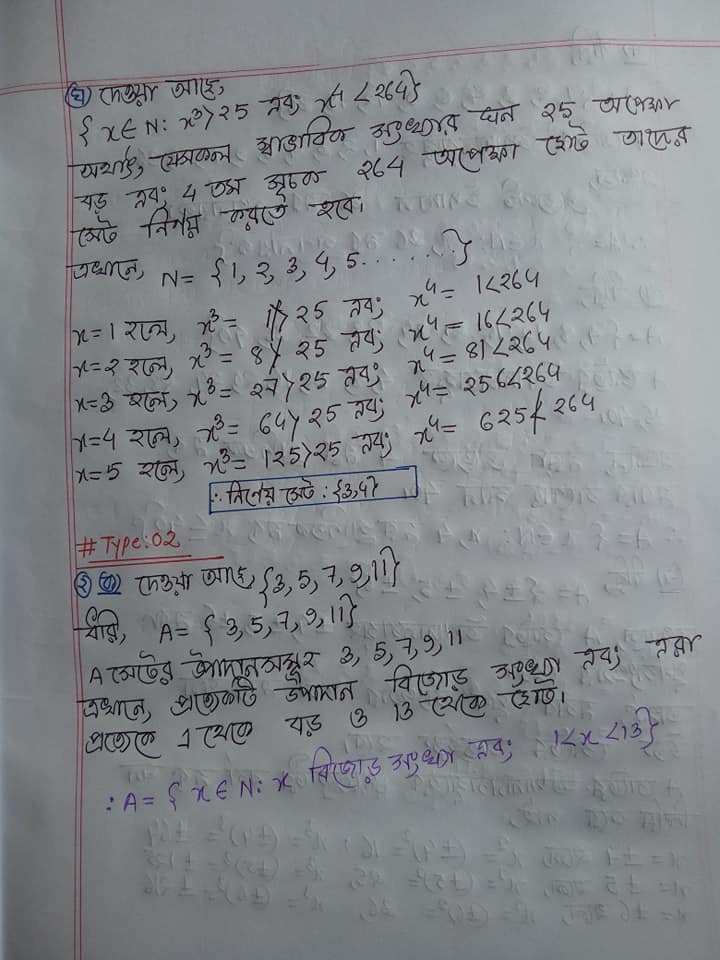 (ঘ) দেওয়া আছে,
{x ∈ N: x³ > 25 এবং x⁴ < 264}
অর্থাৎ, যেসকল স্বাভাবিক সংখ্যার ঘন 25 অপেক্ষা
বড় এবং 4 তম সূচক 264 অপেক্ষা ছোট তাদের
সেট নির্ণয় করতে হবে।
এখানে, N = {1, 2, 3, 4, 5......}
x=1 হলে, x³ = 1 ≯ 25 এবং x⁴ = 1 < 264
x=2 হলে, x³ = 8 ≯ 25 এবং x⁴ = 16 < 264
x=3 হলে, x³ = 27 > 25 এবং x⁴ = 81 < 264
x=4 হলে, x³ = 64 > 25 এবং x⁴ = 256 < 264
x=5 হলে, x³ = 125 > 25 এবং x⁴ = 625 ≮ 264
∴ নির্ণেয় সেট : {3,4}
# Type: 02
২ (ক) দেওয়া আছে, {3, 5, 7, 9, 11}
ধরি, A = {3, 5, 7, 9, 11}
A সেটের উপাদানসমূহ 3, 5, 7, 9, 11
এখানে, প্রত্যেকটি উপাদান বিজোড় সংখ্যা এবং এরা
প্রত্যেকে 1 থেকে বড় ও 13 থেকে ছোট।
∴ A = {x ∈ N: x বিজোড় সংখ্যা এবং 1 < x < 13}